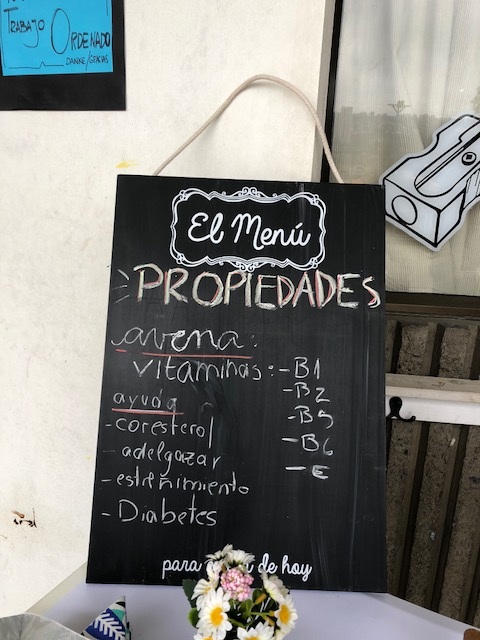 TRABAJO
ORDENADO
DANKE/GRACIAS
El Menú
PROPIEDADES
avena:
vitaminas: -B1
-B2
-B5
-B6
-E
ayuda
-coresterol
-adelgazar
-estreñimiento
-Diabetes
para de hoy